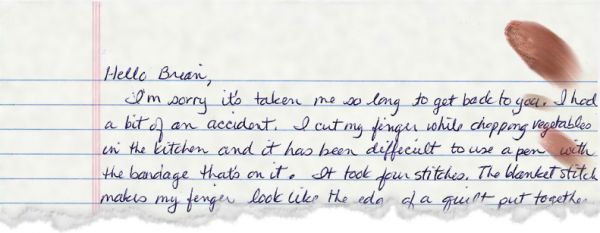 Hello Brean,
I'm sorry it's taken me so long to get back to you. I had
a bit of an accident. I cut my finger while chopping vegetables
in the kitchen and it has been difficult to use a pen with
the bandage that's on it. It took four stitches. The blanket stitch
makes my finger look like the edge of a quilt put together